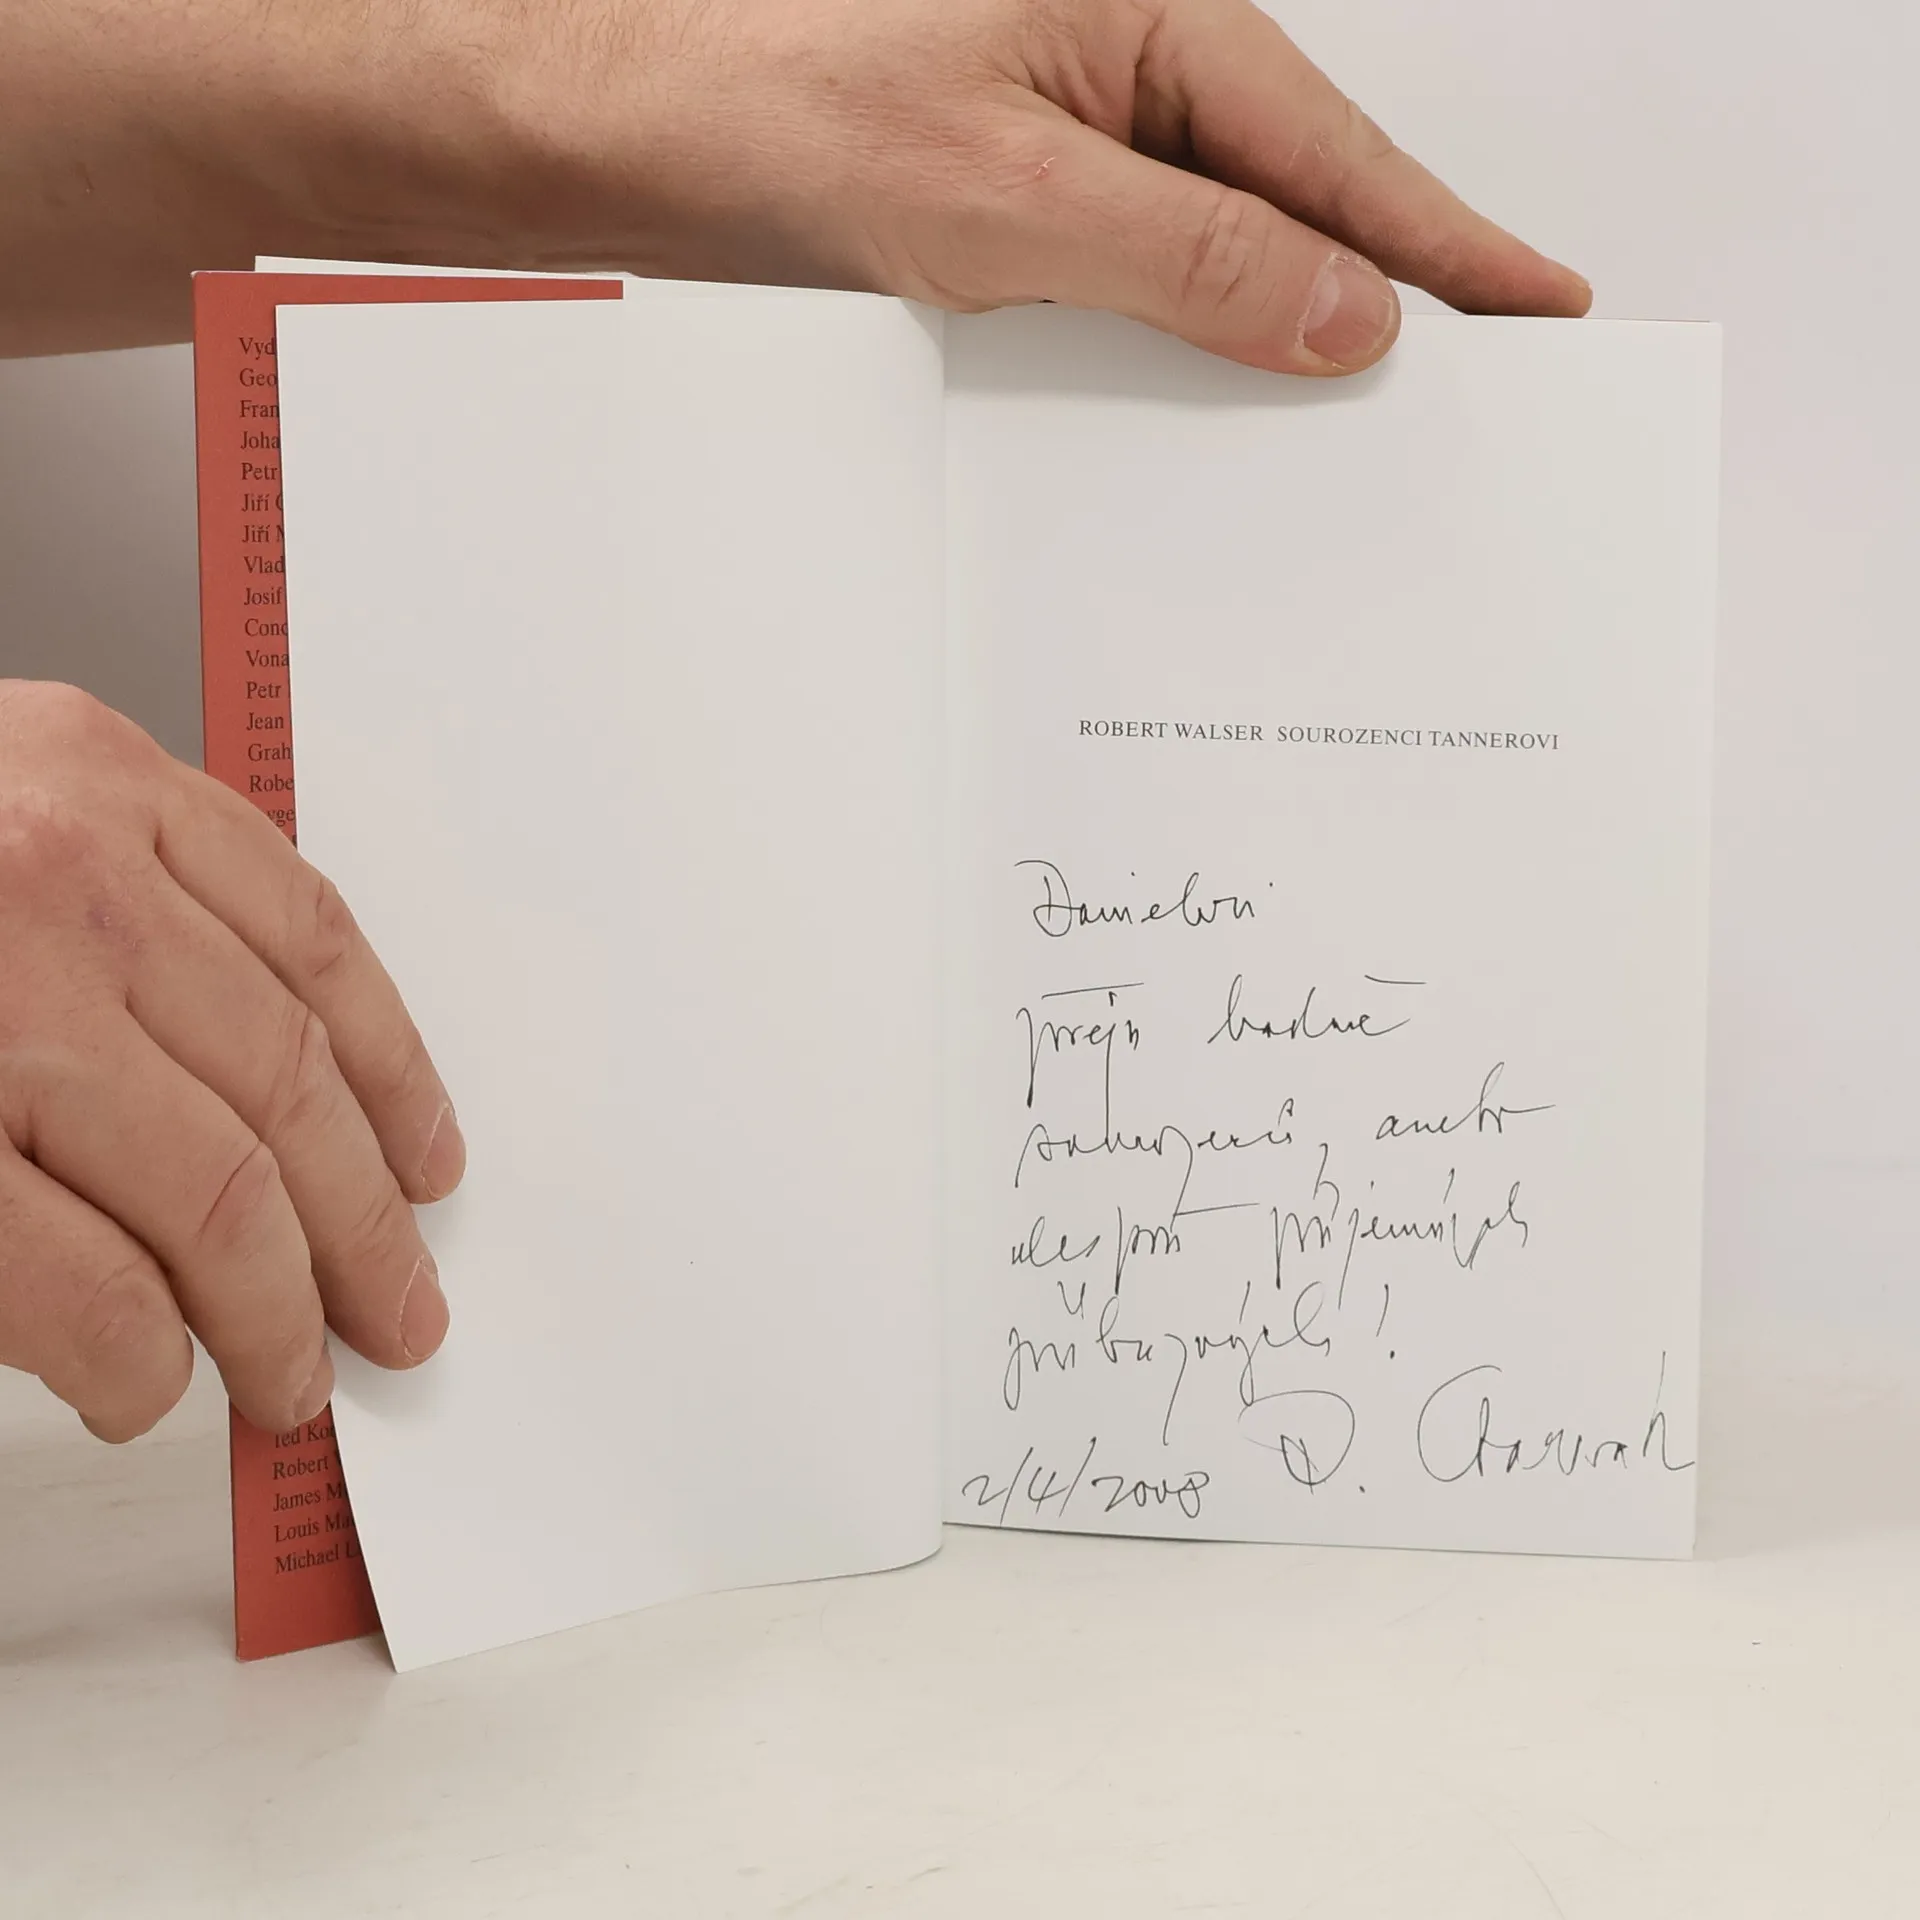 Vyd
Geo
Fran
Joha
Petr
Jiří
Jiří
Vlad
Josif
Conc
Vona
Petr
Jean
Grah
Robe
Ted Ko
Robert
James M
Louis Ma
Michael L
ROBERT WALSER SOUROZENCI TANNEROVI
Danielovi
přeji hodně
sourozenců, anebo
alespoň příjemných
příbuzných!
2/4/2008 R.